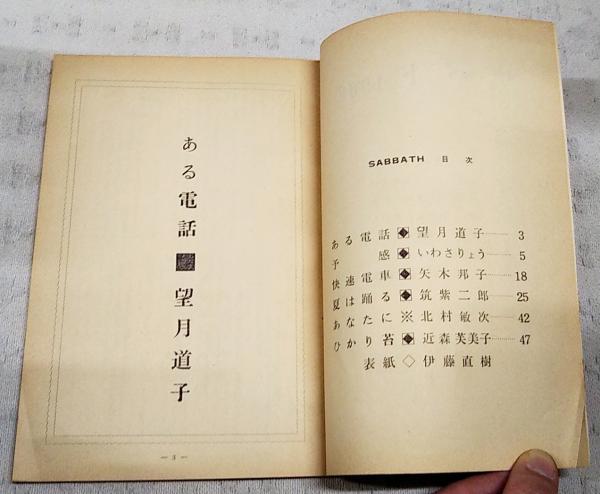 SABBATH 目次
ある電話◈望月道子……3
予感◈いわさりょう……5
快速電車◈矢木邦子……18
夏は踊る◈筑紫二郎……25
あなたに※北村敏次……42
ひかり苔◈近森芙美子……47
表紙◇伊藤直樹
ある電話
望月道子
— 3 —